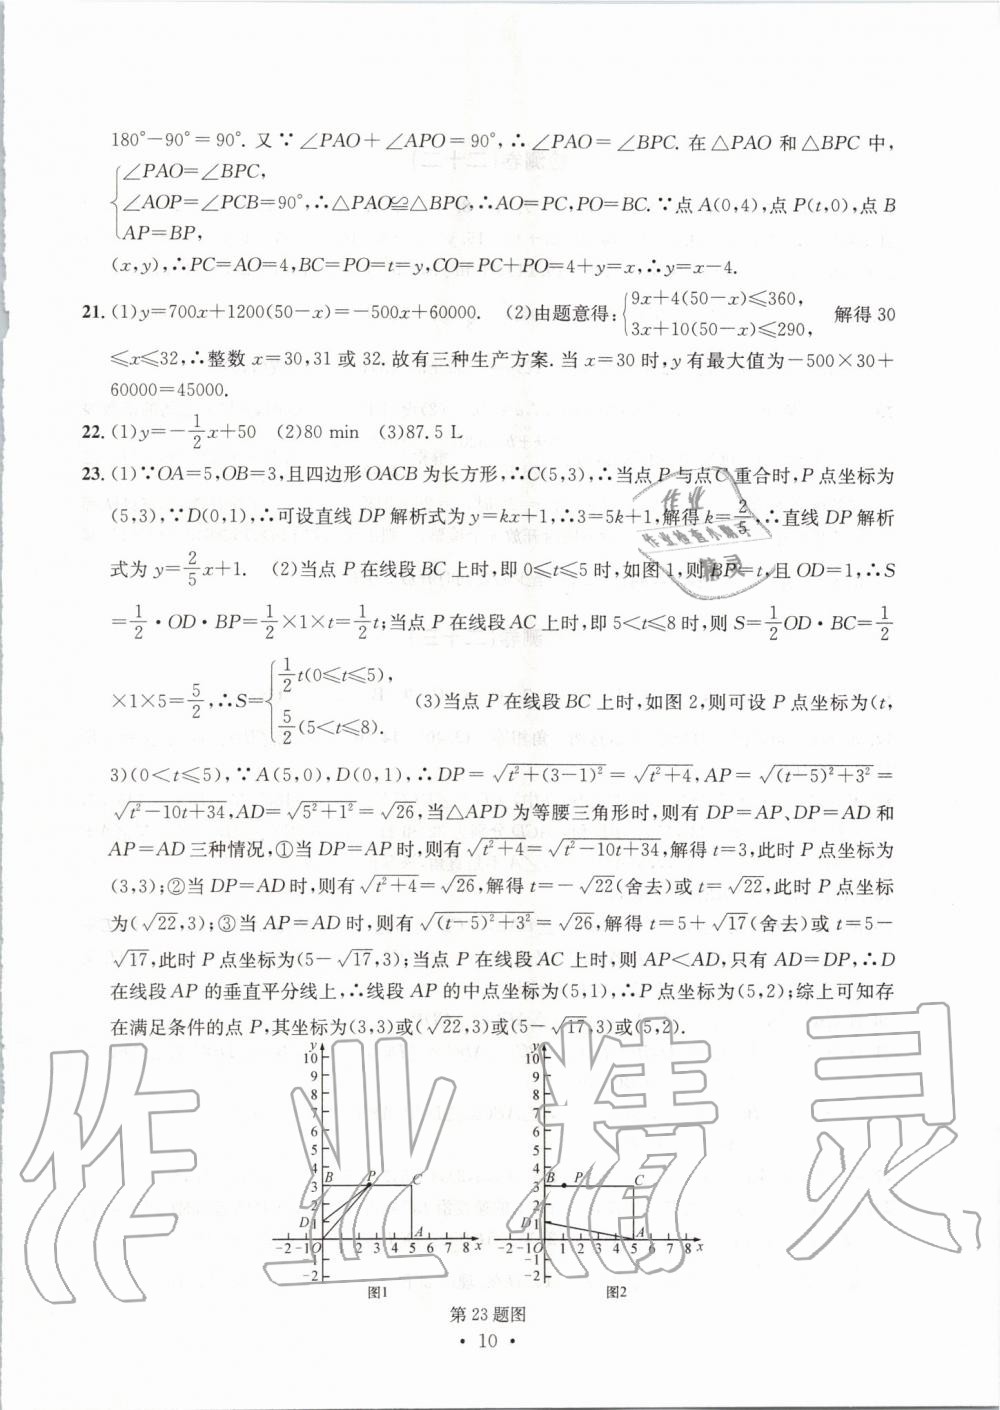 180°－90°＝90°. 又∵∠PAO＋∠APO＝90°,∴∠PAO＝∠BPC. 在△PAO 和△BPC 中,
∠PAO＝∠BPC,
∠AOP＝∠PCB＝90°,∴△PAO≌△BPC,∴AO＝PC,PO＝BC.∵点 A(0,4),点 P(t,0),点 B
AP＝BP,
(x,y),∴PC＝AO＝4,BC＝PO＝t＝y,CO＝PC＋PO＝4＋y＝x,∴y＝x－4.
21. (1)y＝700x＋1200(50－x)＝－500x＋60000. (2)由题意得:{9x＋4(50－x)≤360, 3x＋10(50－x)≤290, 解得 30
≤x≤32,∴整数 x＝30,31 或 32. 故有三种生产方案. 当 x＝30 时,y 有最大值为－500×30＋
60000＝45000.
22. (1)y＝－1/2x＋50 (2)80 min (3)87.5 L
23. (1)∵OA＝5,OB＝3,且四边形 OACB 为长方形,∴C(5,3),∴当点 P 与点 C 重合时,P 点坐标为
(5,3),∵D(0,1),∴可设直线 DP 解析式为 y＝kx＋1,∴3＝5k＋1,解得 k＝2/5,∴直线 DP 解析
式为 y＝2/5x＋1. (2)当点 P 在线段 BC 上时,即 0≤t≤5 时,如图 1,则 BP＝t,且 OD＝1,∴S
＝1/2·OD·BP＝1/2×1×t＝1/2t;当点 P 在线段 AC 上时,即 5<t≤8 时,则 S＝1/2OD·BC＝1/2
×1×5＝5/2,∴S＝{1/2t(0≤t≤5), 5/2(5<t≤8). (3)当点 P 在线段 BC 上时,如图 2,则可设 P 点坐标为(t,
3)(0<t≤5),∵A(5,0),D(0,1),∴DP＝√(t²＋(3－1)²)＝√(t²＋4),AP＝√((t－5)²＋3²)＝
√(t²－10t＋34),AD＝√(5²＋1²)＝√26,当△APD 为等腰三角形时,则有 DP＝AP、DP＝AD 和
AP＝AD 三种情况,①当 DP＝AP 时,则有√(t²＋4)＝√(t²－10t＋34),解得 t＝3,此时 P 点坐标为
(3,3);②当 DP＝AD 时,则有√(t²＋4)＝√26,解得 t＝－√22(舍去)或 t＝√22,此时 P 点坐标
为(√22,3);③当 AP＝AD 时,则有√((t－5)²＋3²)＝√26,解得 t＝5＋√17(舍去)或 t＝5－
√17,此时 P 点坐标为(5－√17,3);当点 P 在线段 AC 上时,则 AP<AD,只有 AD＝DP,∴D
在线段 AP 的垂直平分线上,∴线段 AP 的中点坐标为(5,1),∴P 点坐标为(5,2);综上可知存
在满足条件的点 P,其坐标为(3,3)或(√22,3)或(5－√17,3)或(5,2).
y 10 9 8 7 6 5 4 3 2 1 B P C D A
－2 －1 O 1 2 3 4 5 6 7 8 x
－1
－2
图1
y 10 9 8 7 6 5 4 3 2 1 B P C D A
－2 －1 O 1 2 3 4 5 6 7 8 x
－1
－2
图2
第 23 题图
· 10 ·
作业
作业检查小助手
精灵
作业精灵